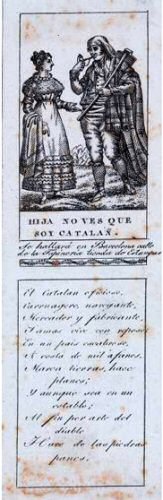 HIJA NO VES QUE
SOY CATALAN.
Se hallará en Barcelona calle
de la tienda de Estampas
El Catalan oficioso,
navegante,
Mercador y fabricante,
Jamas vive con reposo
En un pais escabroso,
A costa de mil afanes,
Marca tierras, hace
planes;
Y aunque sea en un
establo;
Al fin por arte del
diablo
Hace de las piedras
panes.